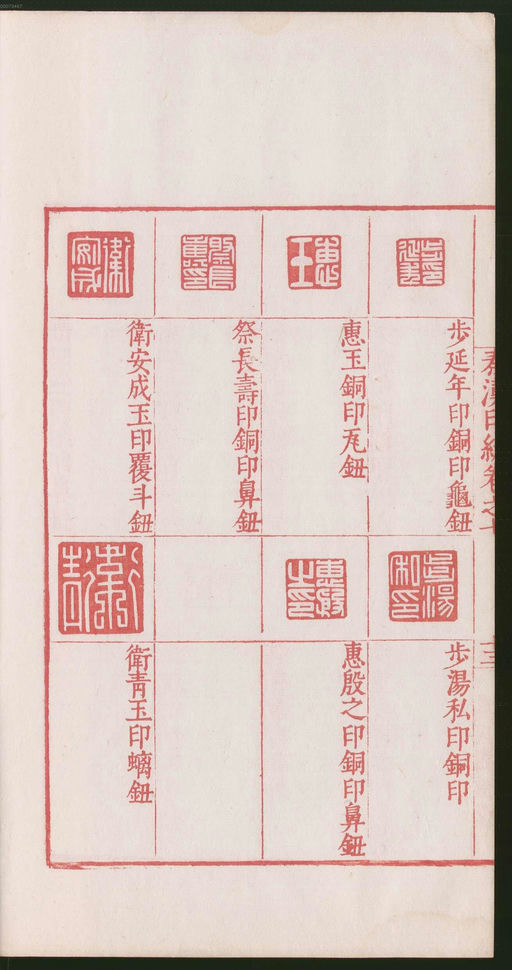 步延年印銅印龜鈕
惠玉銅印瓦鈕
祭長壽印銅印鼻鈕
衛安成玉印覆斗鈕
步湯私印銅印
惠殷之印銅印鼻鈕
衛青玉印螭鈕